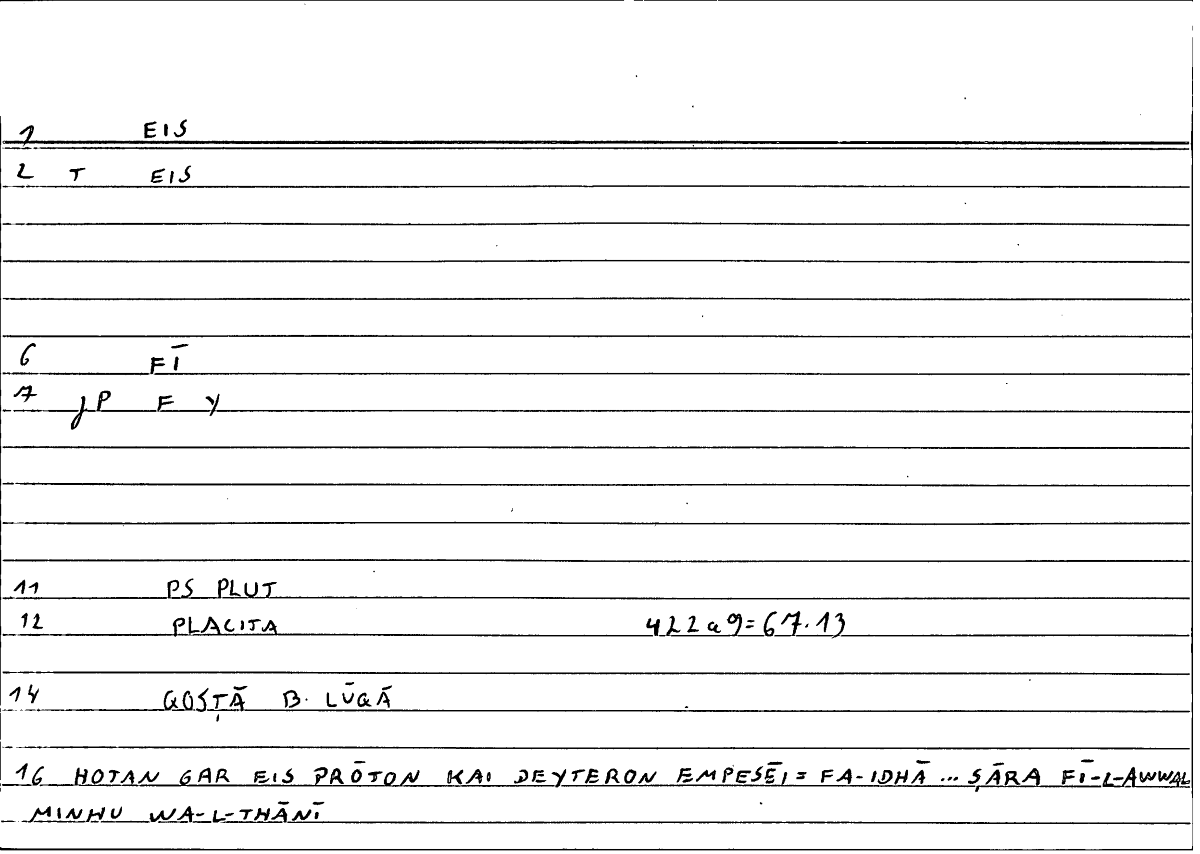 1 EIS
2 T EIS
6 FĪ
7 JP F Y
11 PS PLUT
12 PLACITA 422a9=67.13
14 QOSṬĀ B. LŪQĀ
16 HOTAN GAR EIS PRŌTON KAI DEYTERON EMPESĒI = FA-IDHĀ ... ṢĀRA FĪ-L-AWWAL
MINHU WA-L-THĀNĪ